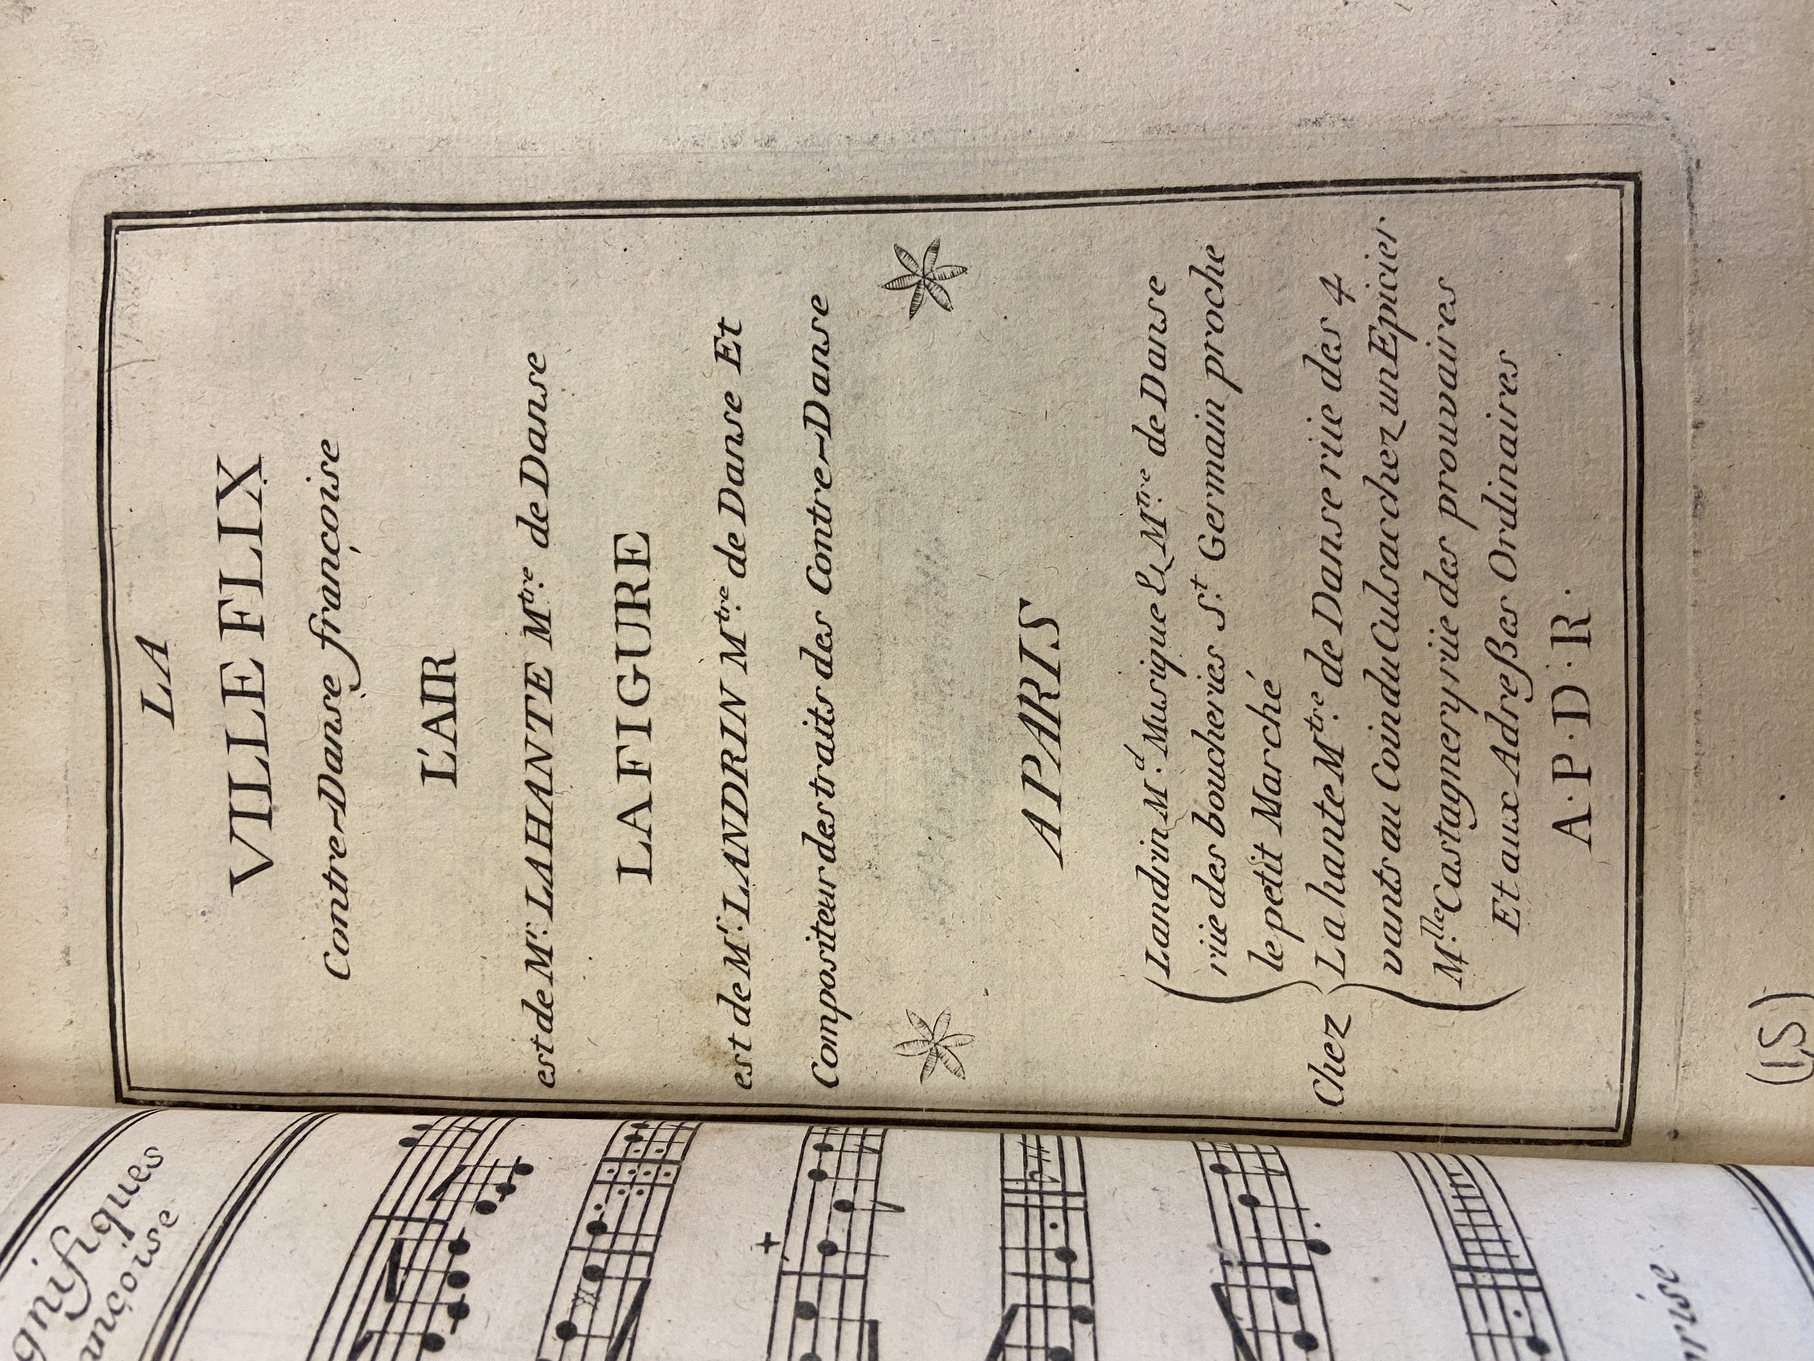 LA
VILLE FLIX
Contre-Danse françoise
L'AIR
est de Mr. LAHANTE Mtre. de Danse
LA FIGURE
est de Mr. LANDRIN Mtre. de Danse Et
Compositeur des traits des Contre-Danse
A PARIS
Landrin Md. Musique & Mtre. de Danse
rüe des boucheries St. Germain proche
le petit Marché
Chez
La hante Mtre. de Danse rüe des 4
vants au Coin du Culsac chez un Epicier
Mlle. Castagnery rüe des prouvaires
Et aux Adreßes Ordinaires
A·P·D·R·
(15)
gnifiques
ançoise